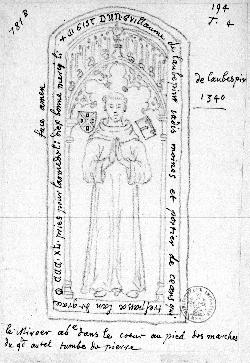 194
T. 4
781 B
✝ Ci Gist Dun Guillaume
de laubespine jadis moines et portier de ceans qui
trespassa lan de grace
M CCC XL. pries pour lui que dieu bone mercy li
face amen
de laubespin
1340
le Miroer abe dans le coeur au pied des marches
du gd autel tumbe de pierre